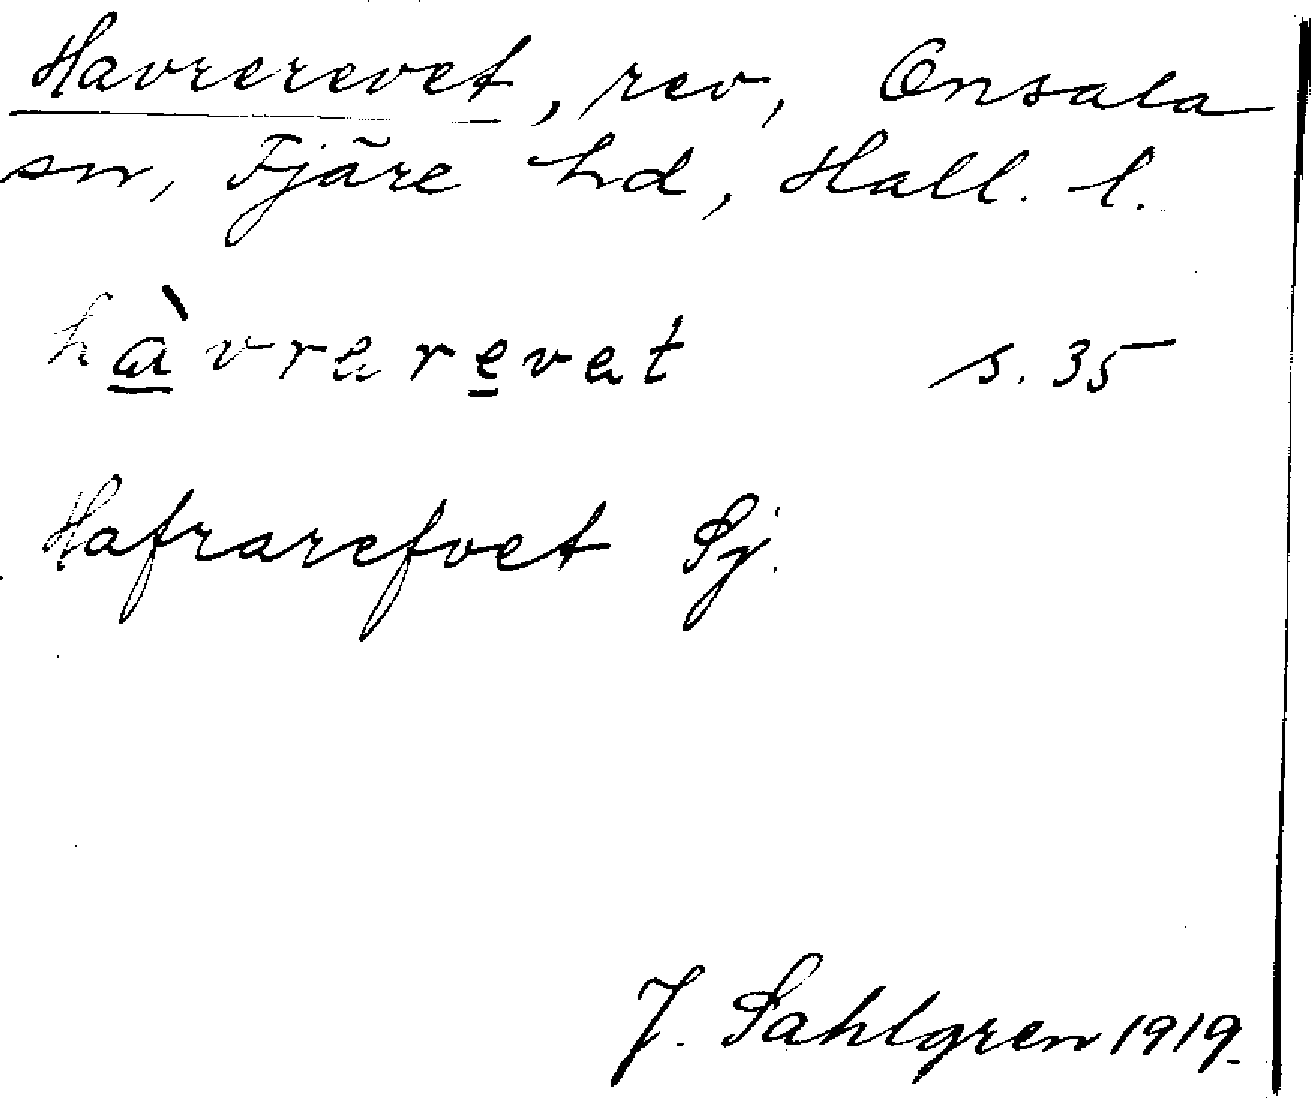 Havrerevet, rev, Onsala
sn, Fjäre hd, Hall. l.
hàvrerevet s. 35
Hafrarefvet Sj.
J. Sahlgren 1919.